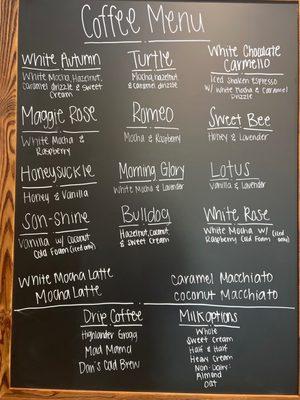 Coffee Menu
White Autumn
White Mocha, Hazelnut,
caramel drizzle & sweet
cream
Turtle
Mocha, hazelnut
& caramel drizzle
White Chocolate
Carmello
Iced Shaken Espresso
w/ White Mocha & Caramel
Drizzle
Maggie Rose
White Mocha &
Raspberry
Romeo
Mocha & Raspberry
Sweet Bee
Honey & Lavender
Honeysuckle
Honey & Vanilla
Morning Glory
White Mocha & Lavender
Lotus
Vanilla & Lavender
Son-shine
Vanilla w/ Coconut
Cold Foam (iced only)
Bulldog
Hazelnut, Coconut,
& Sweet Cream
White Rose
White Mocha w/ (iced
Raspberry Cold Foam only)
White Mocha Latte
Mocha Latte
Caramel Macchiato
coconut Macchiato
Drip Coffee
Highlander Grogg
Mad Mama
Dan's Cold Brew
Milk options
Whole
Sweet Cream
Half & Half
Heavy Cream
Non-Dairy:
Almond
Oat